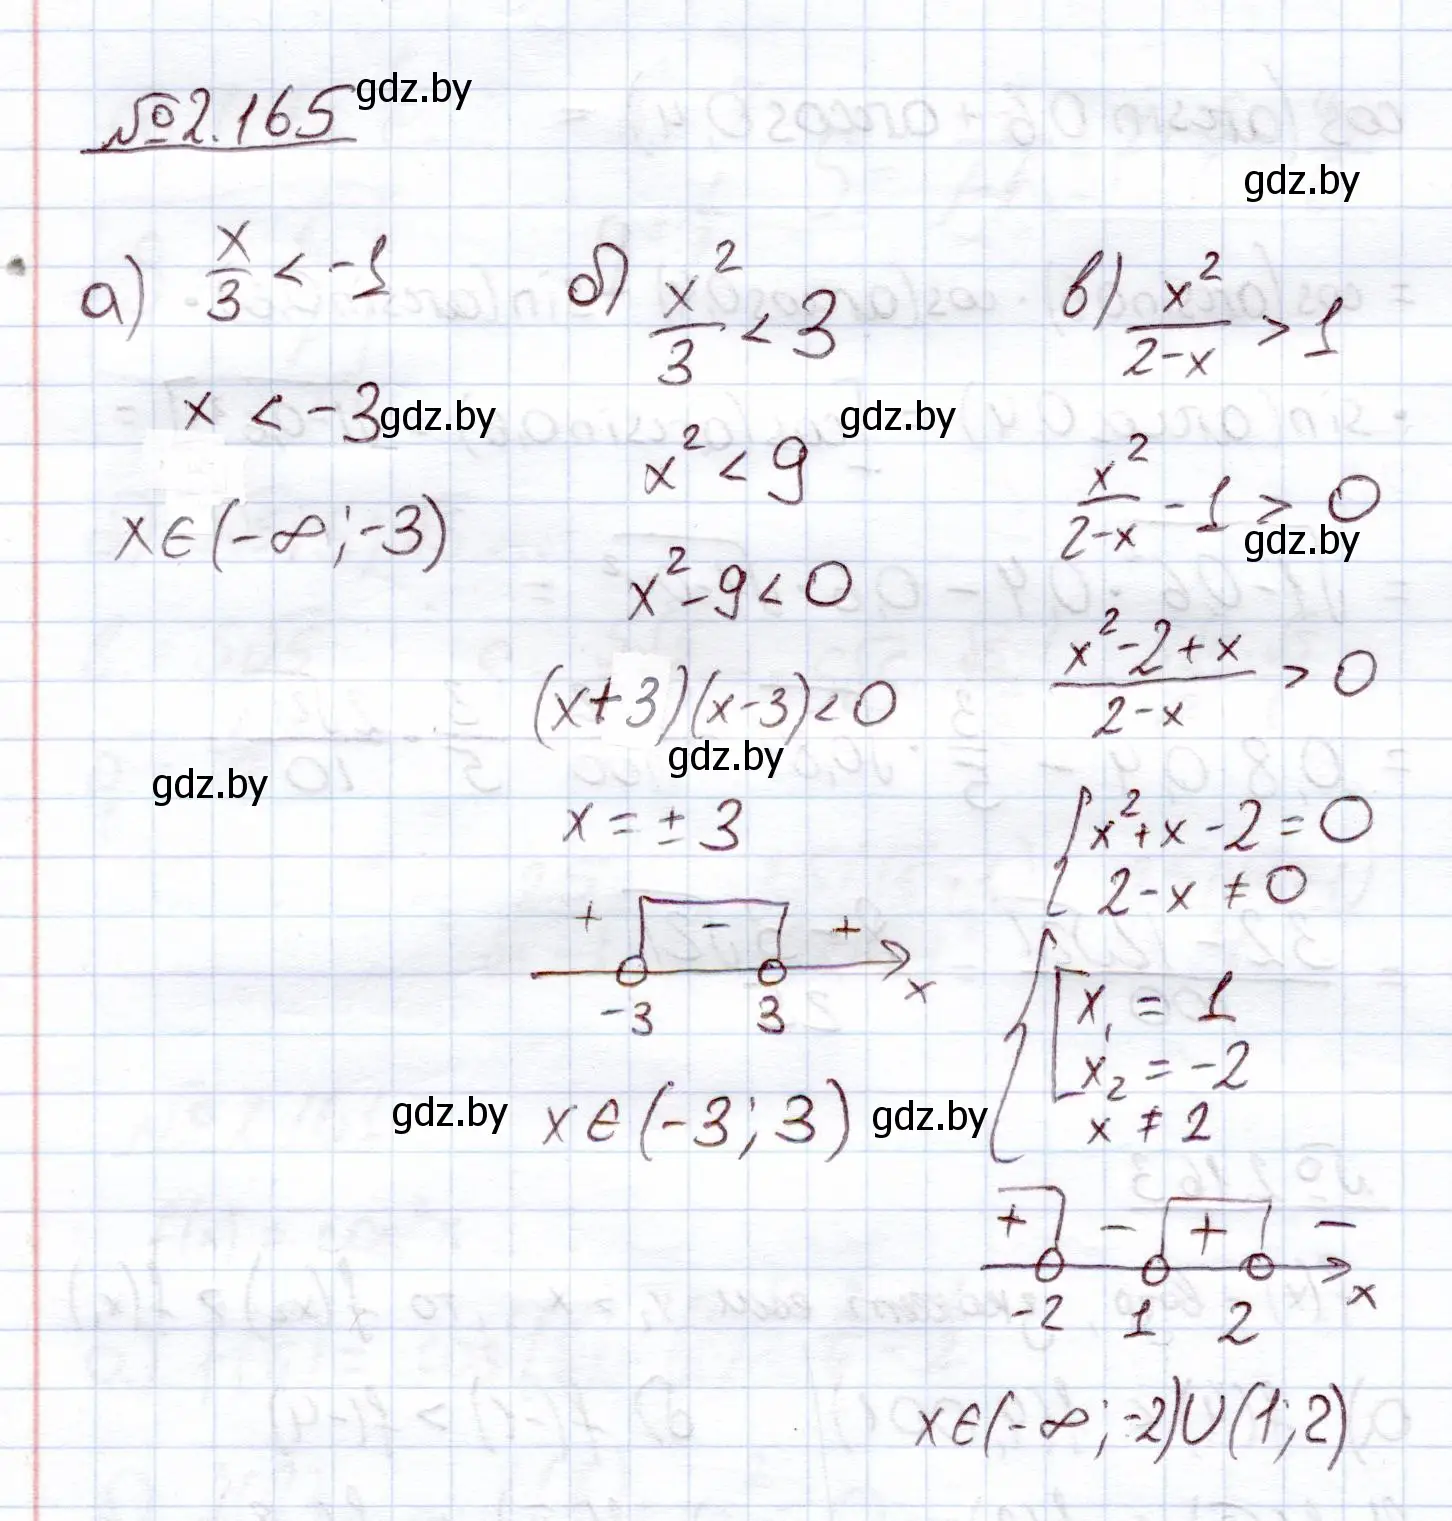 №2.165
gdz.by
gdz.by
а) x/3 < -1
x < -3
gdz.by
x∈(-∞;-3)
gdz.by
б) x²/3 < 3
gdz.by
x² < 9
x²-9<0
(x+3)(x-3)<0
gdz.by
x=±3
+ - +
-3 3 x
gdz.by
x∈(-3;3)
gdz.by
в) x²/(2-x) > 1
x²/(2-x) - 1 > 0
gdz.by
(x²-2+x)/(2-x) > 0
{x²+x-2=0
2-x≠0
{[x₁ = 1
x₂ = -2
x ≠ 2
+ - + -
-2 1 2 x
x∈(-∞;-2)∪(1;2)